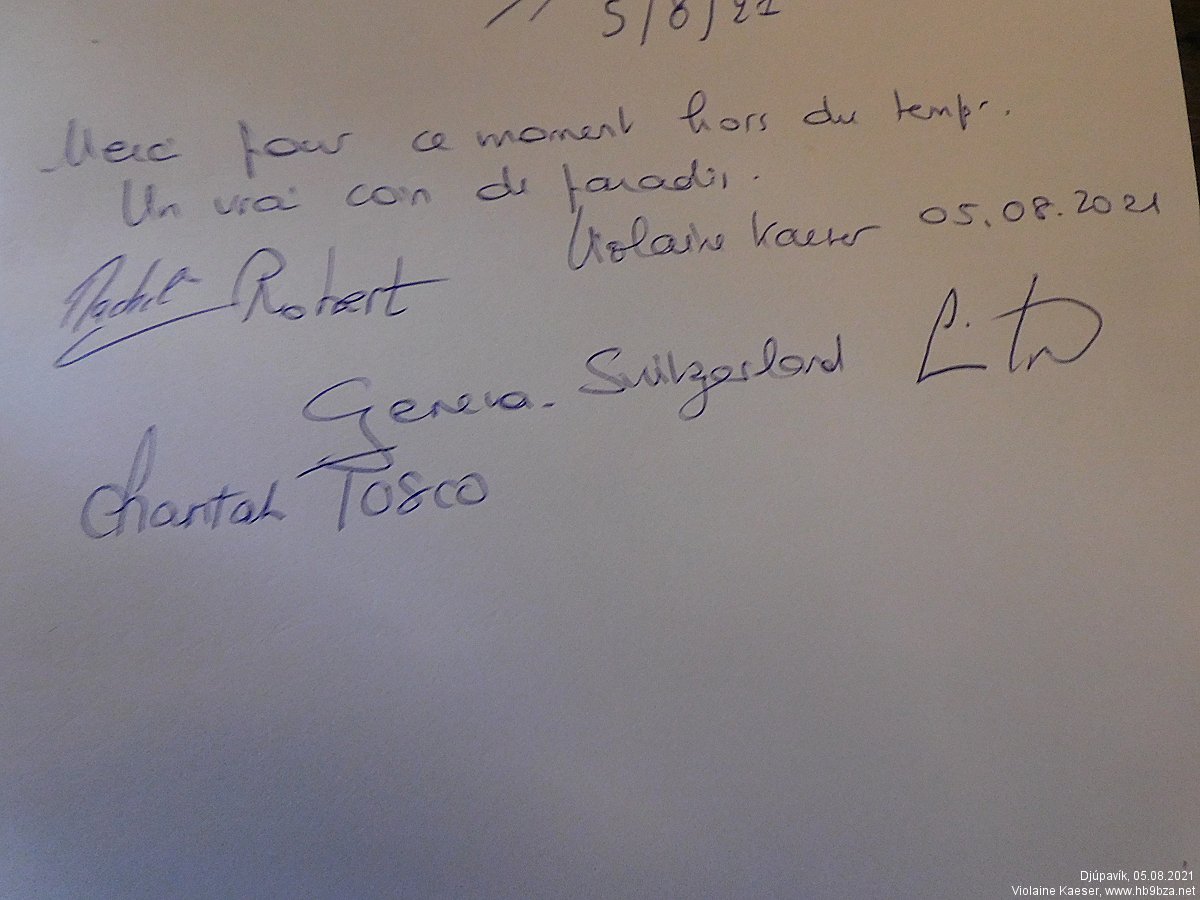 5/8/21
Merci pour ce moment hors du temps.
Un vrai coin de paradis.
Violaine Kaeser 05.08.2021
Robert
Geneva - Switzerland
Chantal TOSCO
Djúpavík, 05.08.2021
Violaine Kaeser, www.hb9bza.net